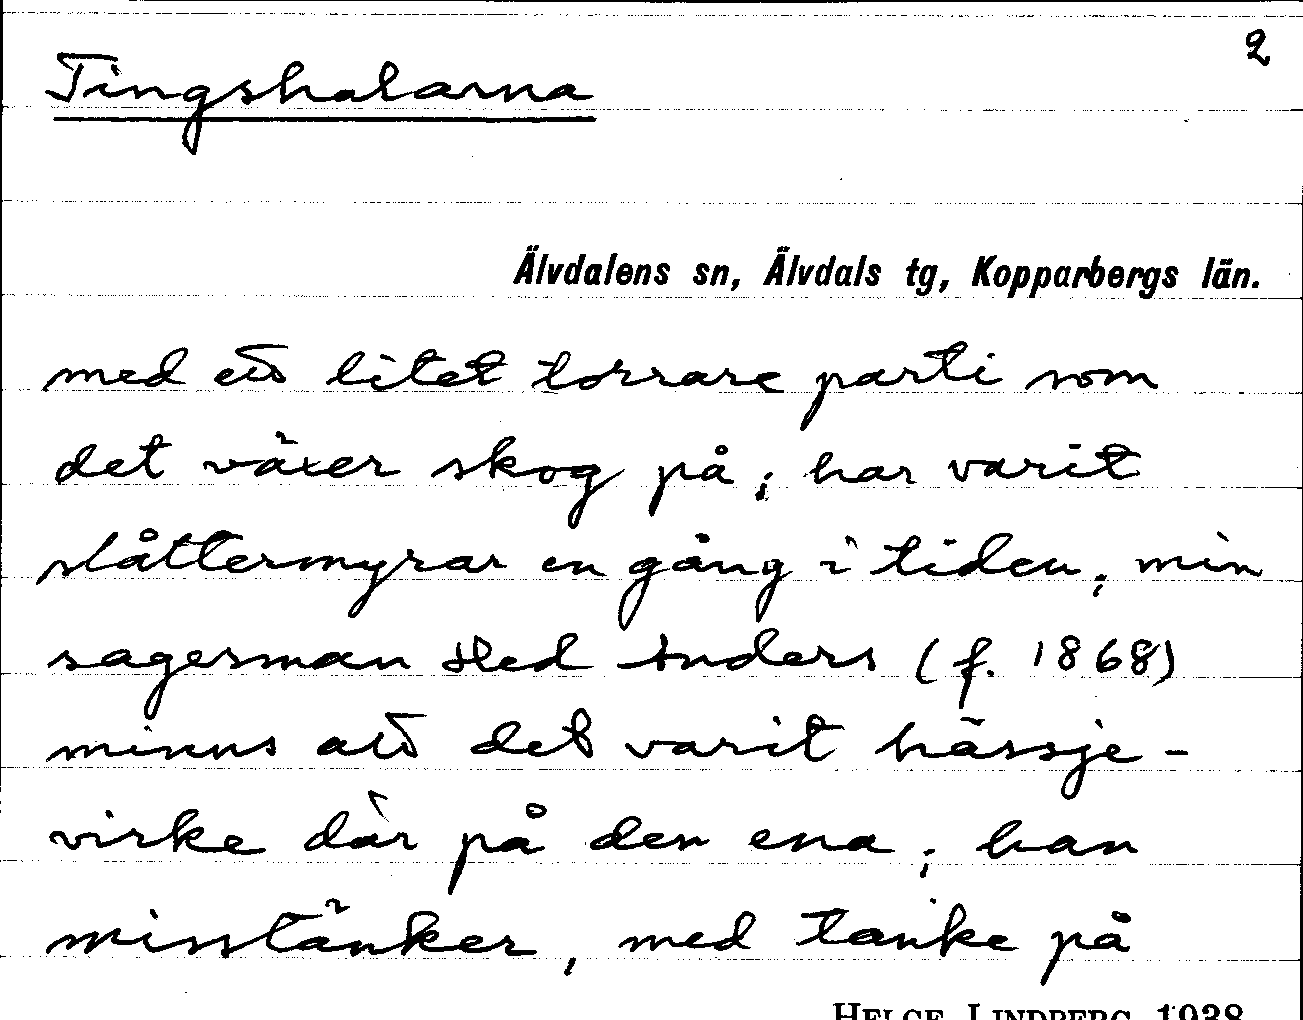 2
Tingshalarna
Älvdalens sn, Älvdals tg, Kopparbergs län.
med ett litet torrare parti som
det växer skog på; har varit
slåttermyrar en gång i tiden; min
sagesman Hed Anders (f. 1868)
minns att det varit hässje-
virke där på den ena; han
misstänker, med tanke på
HELGE LINDBERG 1938